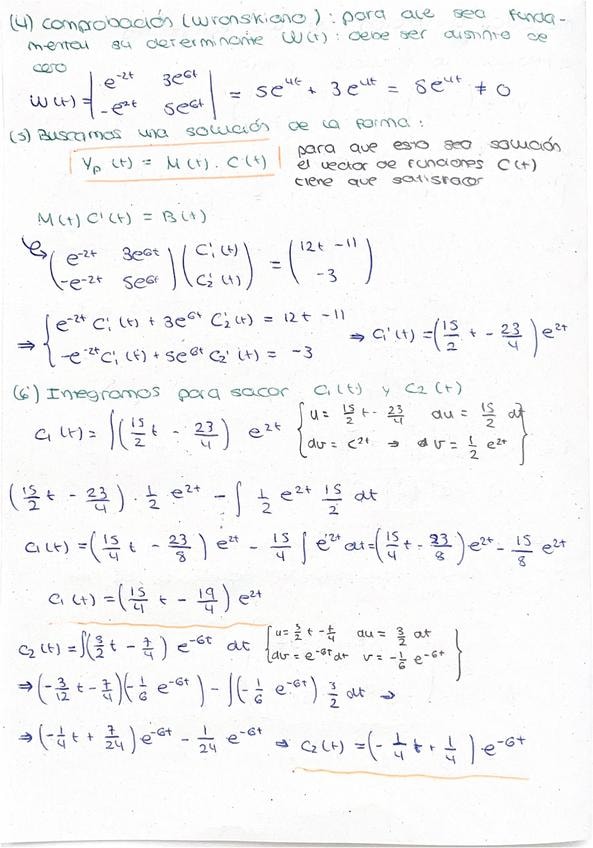 (4) Comprobación (Wronskiano): para que sea funda-
mental su determinante W(t): debe ser distinto de
cero
W(t) = | e^{-2t} 3e^{6t} ; -e^{2t} 5e^{6t} | = 5e^{4t} + 3e^{4t} = 8e^{4t} ≠ 0
(5) Buscamos una solución de la forma:
Yp (t) = M(t) · C(t)
para que esto sea solución
el vector de funciones C(t)
tiene que satisfacer
M(t) C'(t) = B(t)
( e^{-2t} 3e^{6t} ; -e^{-2t} 5e^{6t} ) ( C1'(t) ; C2'(t) ) = ( 12t -11 ; -3 )
⇒ { e^{-2t} C1'(t) + 3e^{6t} C2'(t) = 12t -11
-e^{-2t} C1'(t) + 5e^{6t} C2'(t) = -3
⇒ C1'(t) = (15/2 t - 23/4) e^{2t}
(6) Integramos para sacar C1(t) y C2(t)
C1(t) = ∫(15/2 t - 23/4) e^{2t} { u = 15/2 t - 23/4 du = 15/2 dt
dv = e^{2t} ⇒ v = 1/2 e^{2t} }
(15/2 t - 23/4) · 1/2 e^{2t} - ∫ 1/2 e^{2t} 15/2 dt
C1(t) = (15/4 t - 23/8) e^{2t} - 15/4 ∫ e^{2t} dt = (15/4 t - 23/8) e^{2t} - 15/8 e^{2t}
C1(t) = (15/4 t - 19/4) e^{2t}
C2(t) = ∫(3/2 t - 7/4) e^{-6t} dt { u = 3/2 t - 7/4 du = 3/2 dt
dv = e^{-6t} dt v = -1/6 e^{-6t} }
⇒ (-3/12 t - 7/4)(-1/6 e^{-6t}) - ∫(-1/6 e^{-6t}) 3/2 dt ⇒
⇒ (-1/4 t + 7/24) e^{-6t} - 1/24 e^{-6t} ⇒ C2(t) = (-1/4 t + 1/4) e^{-6t}